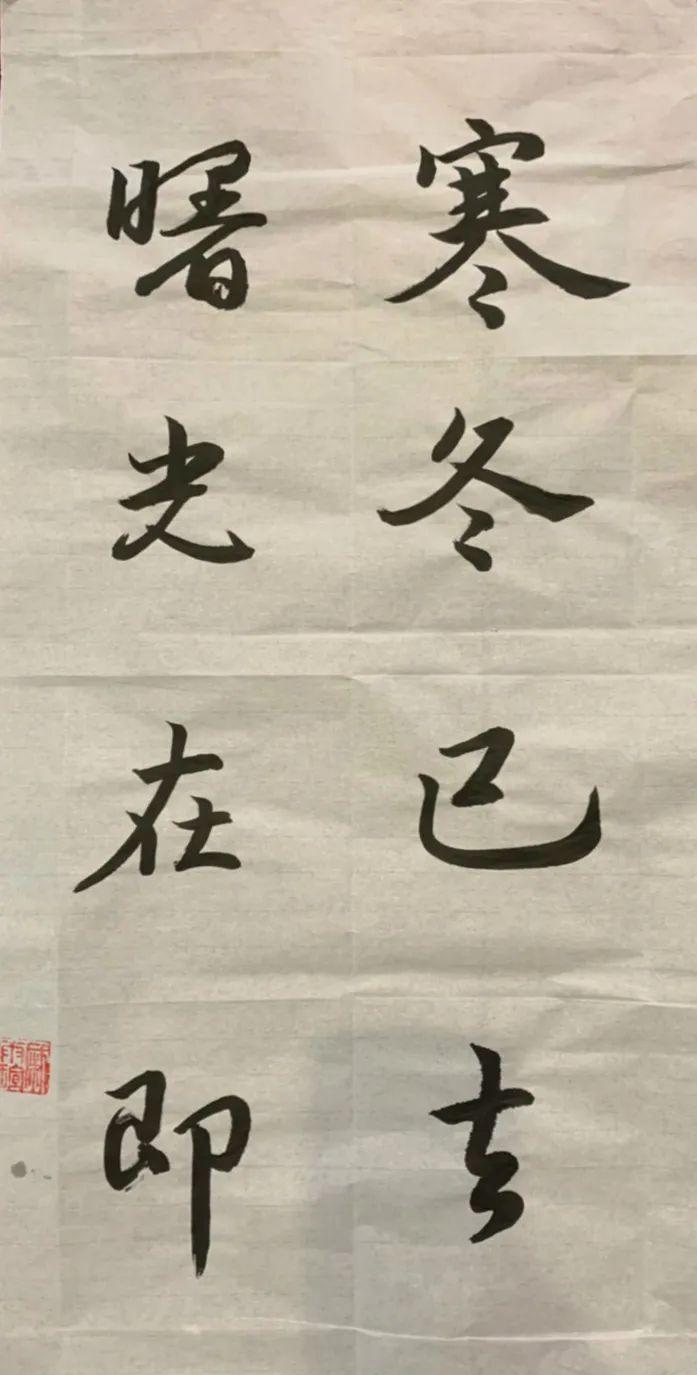 寒冬已去
曙光在即